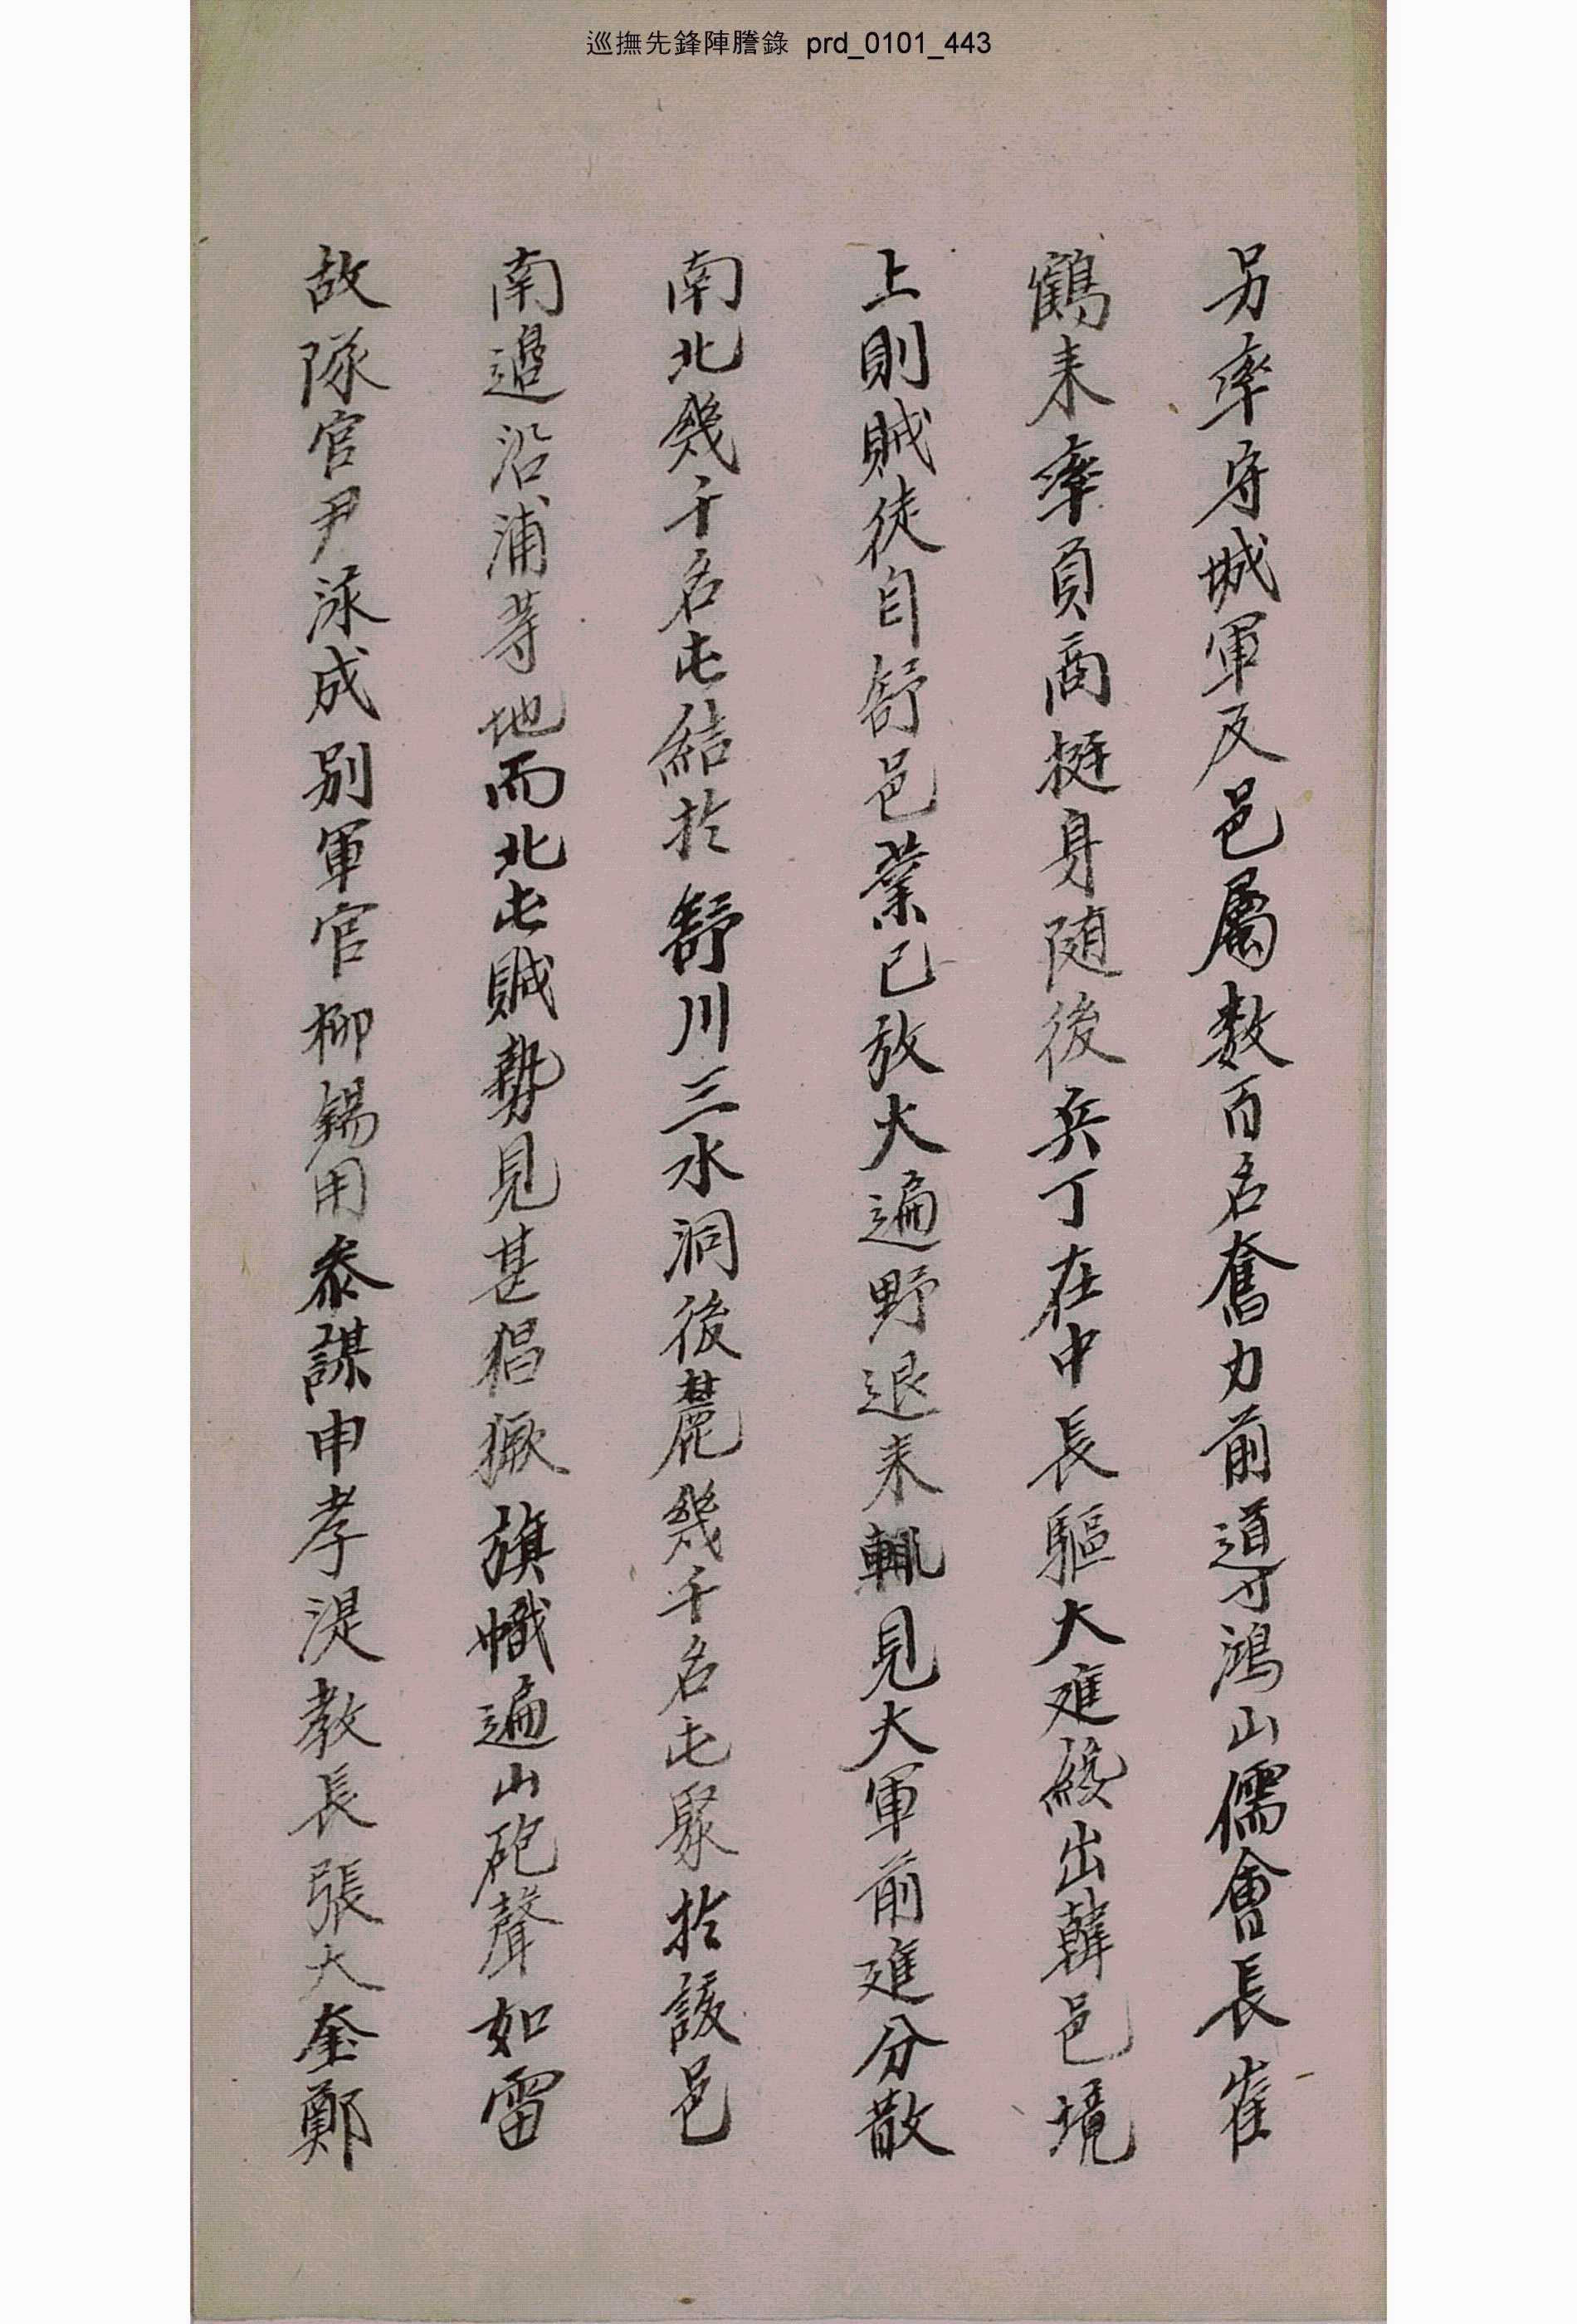 巡撫先鋒陣謄錄 prd_0101_443
另率守城軍及邑屬数百名奮力前導鴻山儒會長崔
鶴来率負商挺身随後兵丁在中長驅大進纔出韓邑境
上則賊徒自舒邑業已放火遍野退来輒見大軍前進分散
南北幾千名屯結於舒川三水洞後麓幾千名屯聚於該邑
南邉沿浦等地而北屯賊勢見甚猖獗旗幟遍山砲聲如雷
故隊官尹泳成別軍官柳錫用叅謀申孝湜教長張大奎鄭